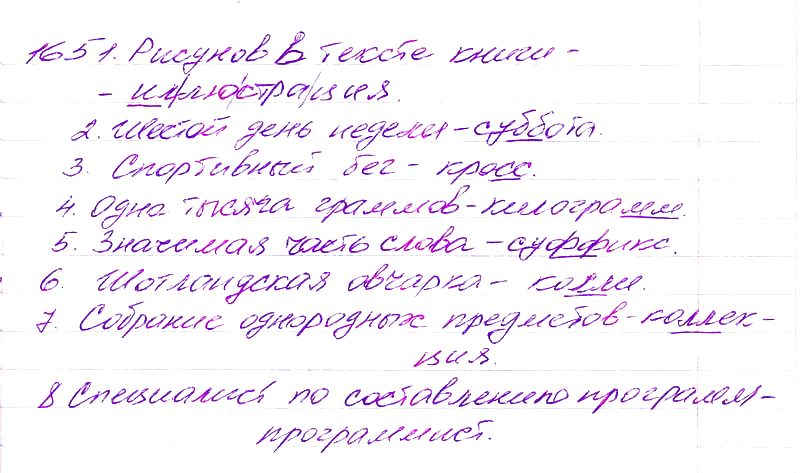 1651. Рисунов в тексте книги -
- ил/лю/стра/ция.
2. Шестой день недели - суббота.
3. Спортивный бег - кросс.
4. Одна тысяча граммов - килограмм.
5. Значимая часть слова - суффикс.
6. Шотландская овчарка - колли.
7. Собрание однородных предметов - коллек-
ция.
8 Специалист по составлению программ -
программист.